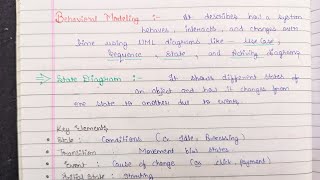 Behavioral Modeling :- It describes how a system
behaves, interacts, and changes over
time using UML diagrams like Use Case,
Sequence, State, and Activity diagrams
State Diagram :- It shows different states of
an object and how it changes from
one state to another due to events.
Key Elements
State : Conditions (Idle, Processing)
Transition : Movement b/w states
Event : Cause of change (eg click, payment)
Initial State : Starting